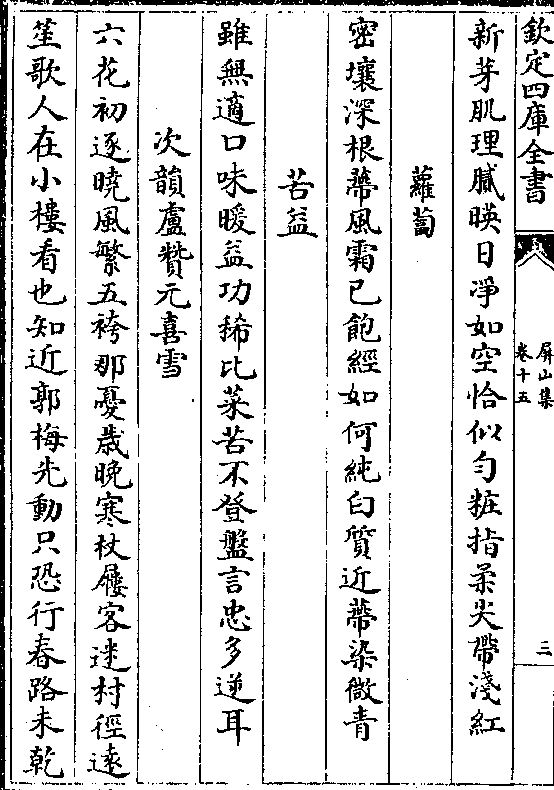 欽定四庫全書
屏山集
卷十五
三
新芽肌理膩暎日凈如空恰似勻粧指柔尖帶淺紅
蘿蔔
密壤深根蔕風霜已飽經如何純白質近蔕染微青
苦益
雖無適口味暖益功稀比菜苦不登盤言忠多逆耳
次韻盧贊元喜雪
六花初逐曉風繁五袴那憂歲晚寒杖屨客迷村徑遠
笙歌人在小樓看也知近郭梅先動只恐行春路未乾